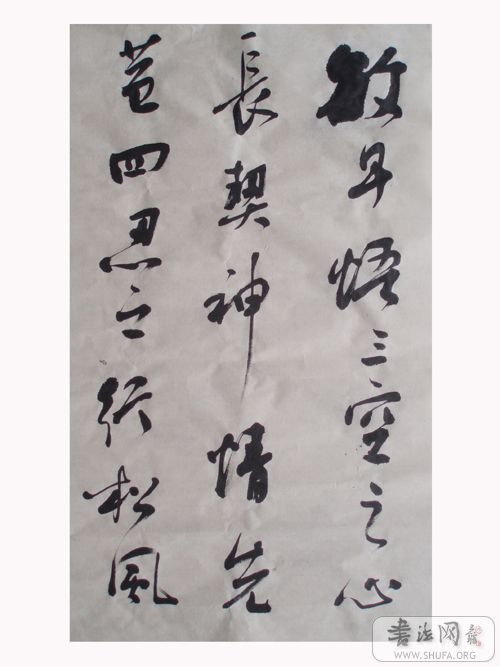 敏早悟三空之心
長契神情先
苞四忍之行松風
书法网
WWW.SHUFA.ORG